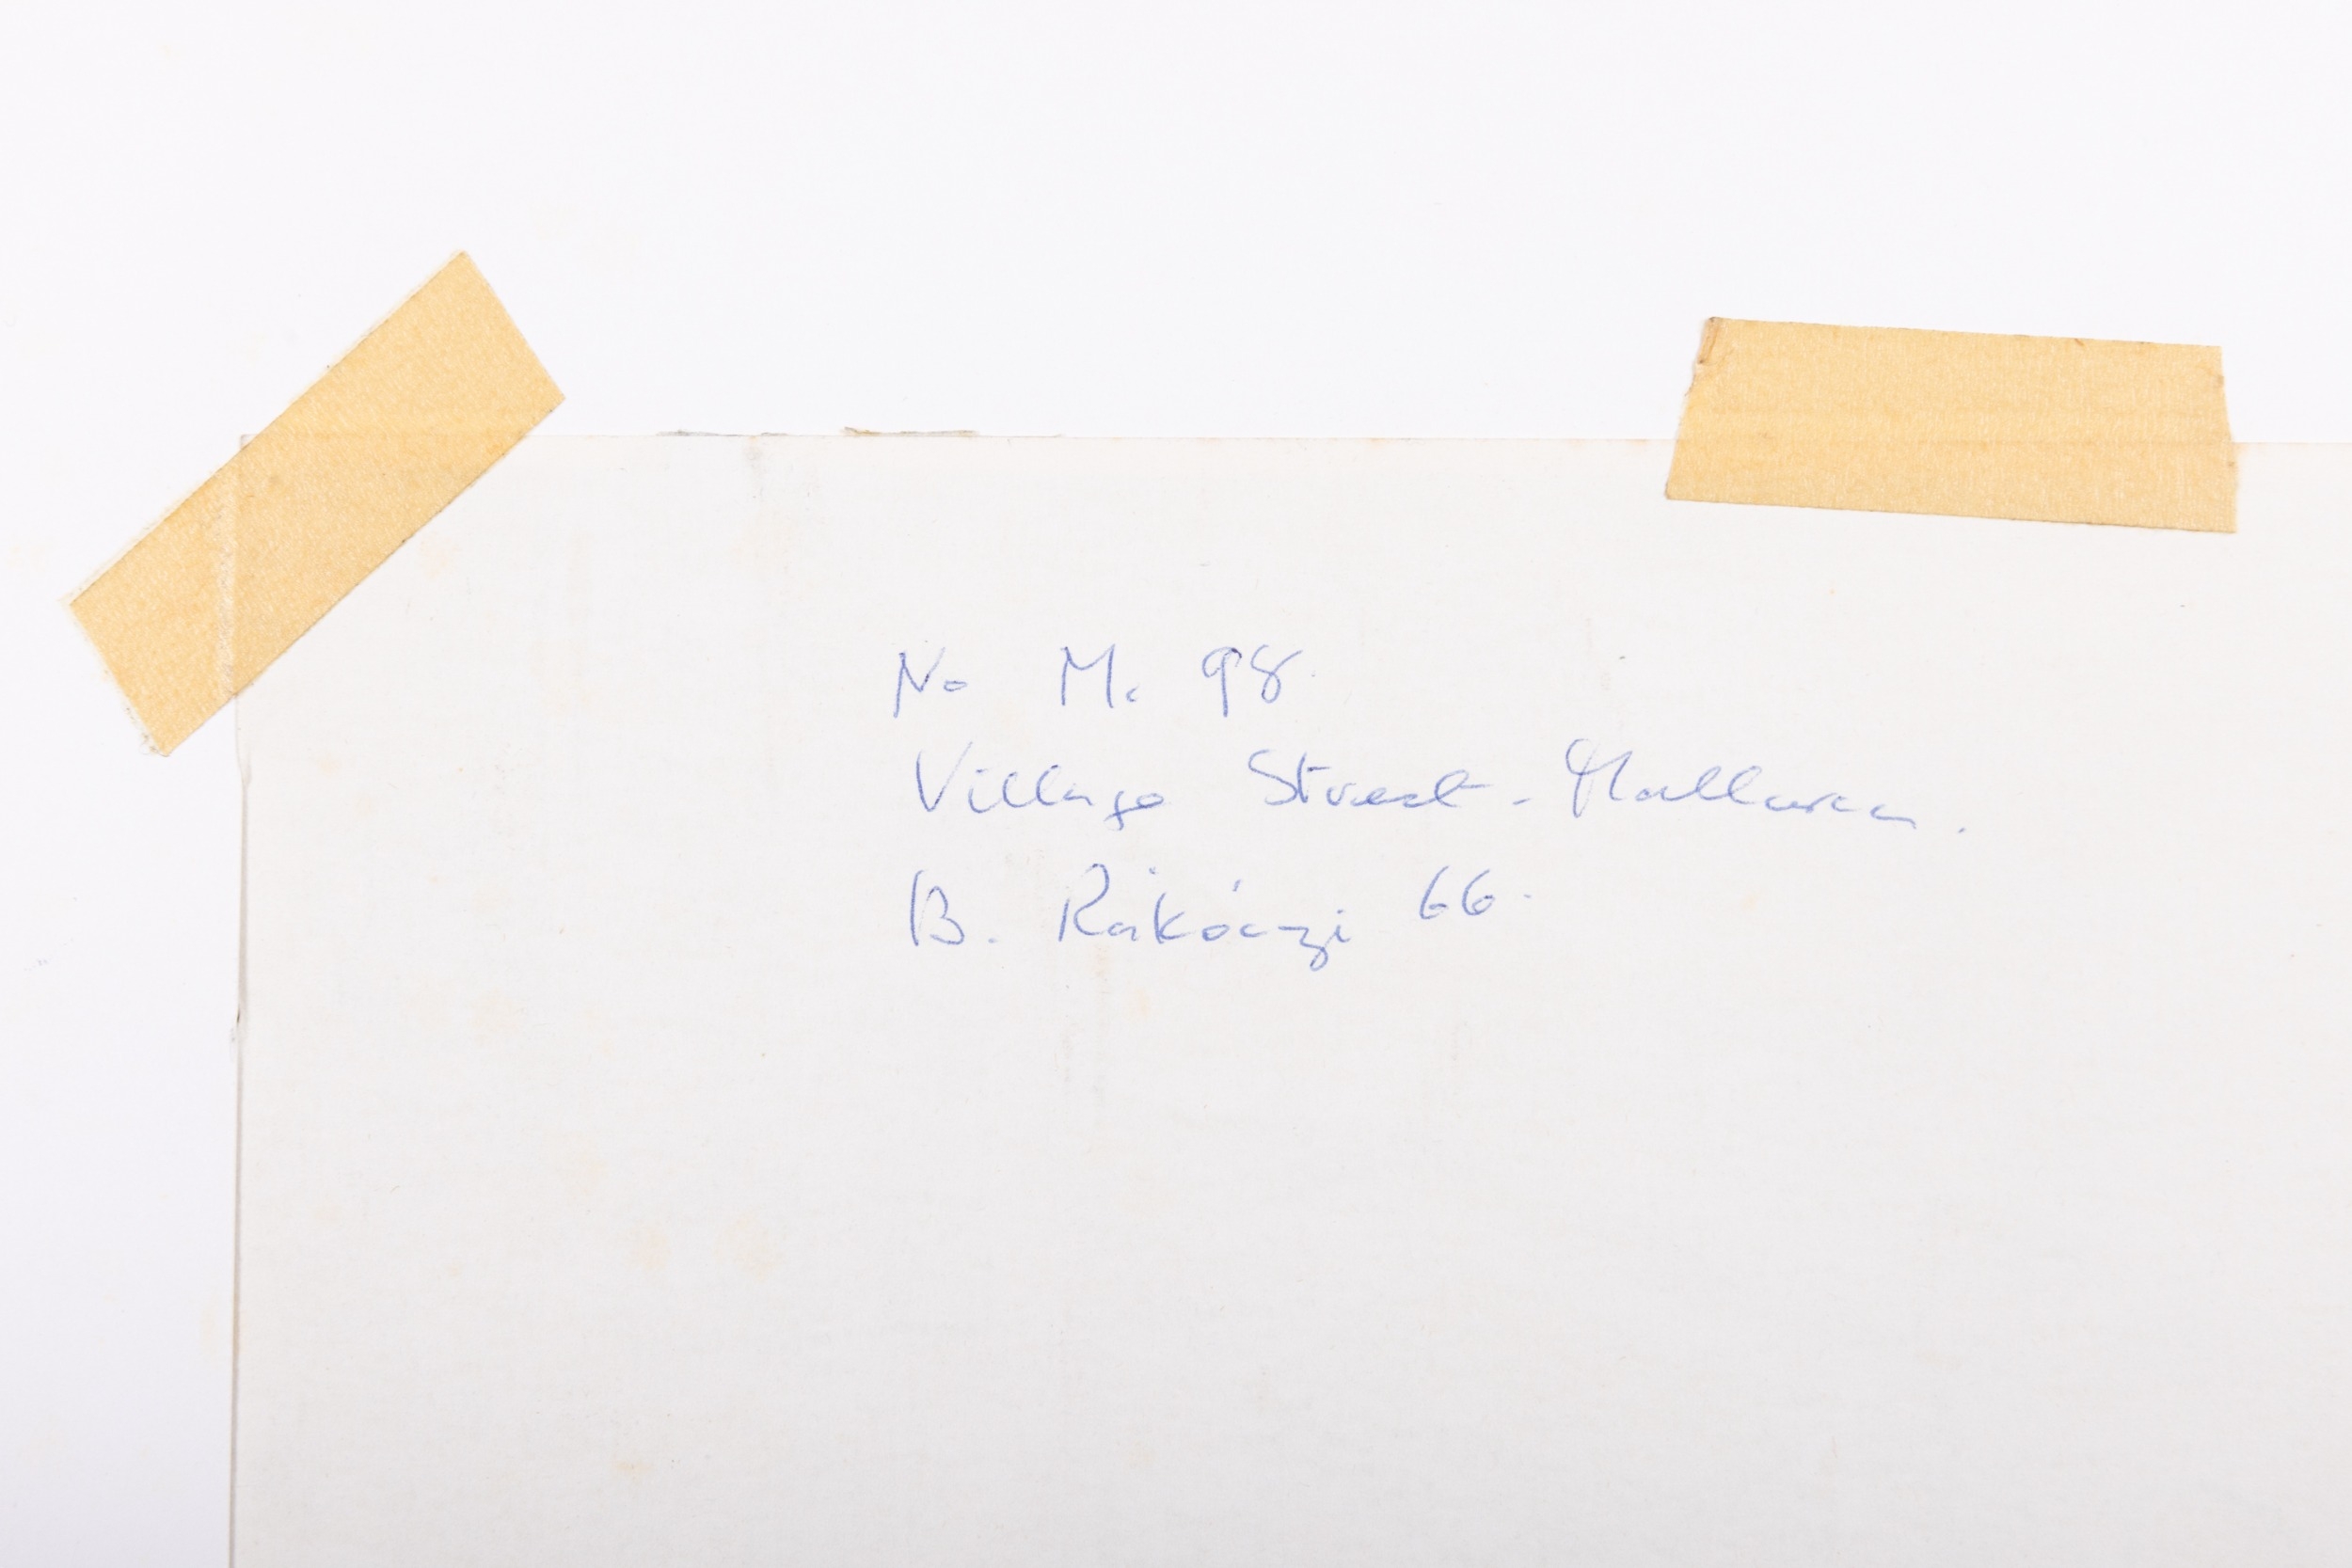 No M. 98.
Village Street - Mallorca.
B. Rákóczi 66.